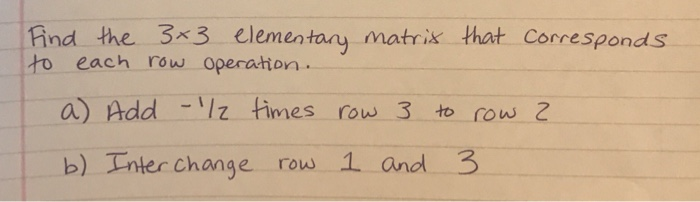 Find the 3×3 elementary matrix that corresponds
to each row operation.
a) Add -1/2 times row 3 to row 2
b) Interchange row 1 and 3